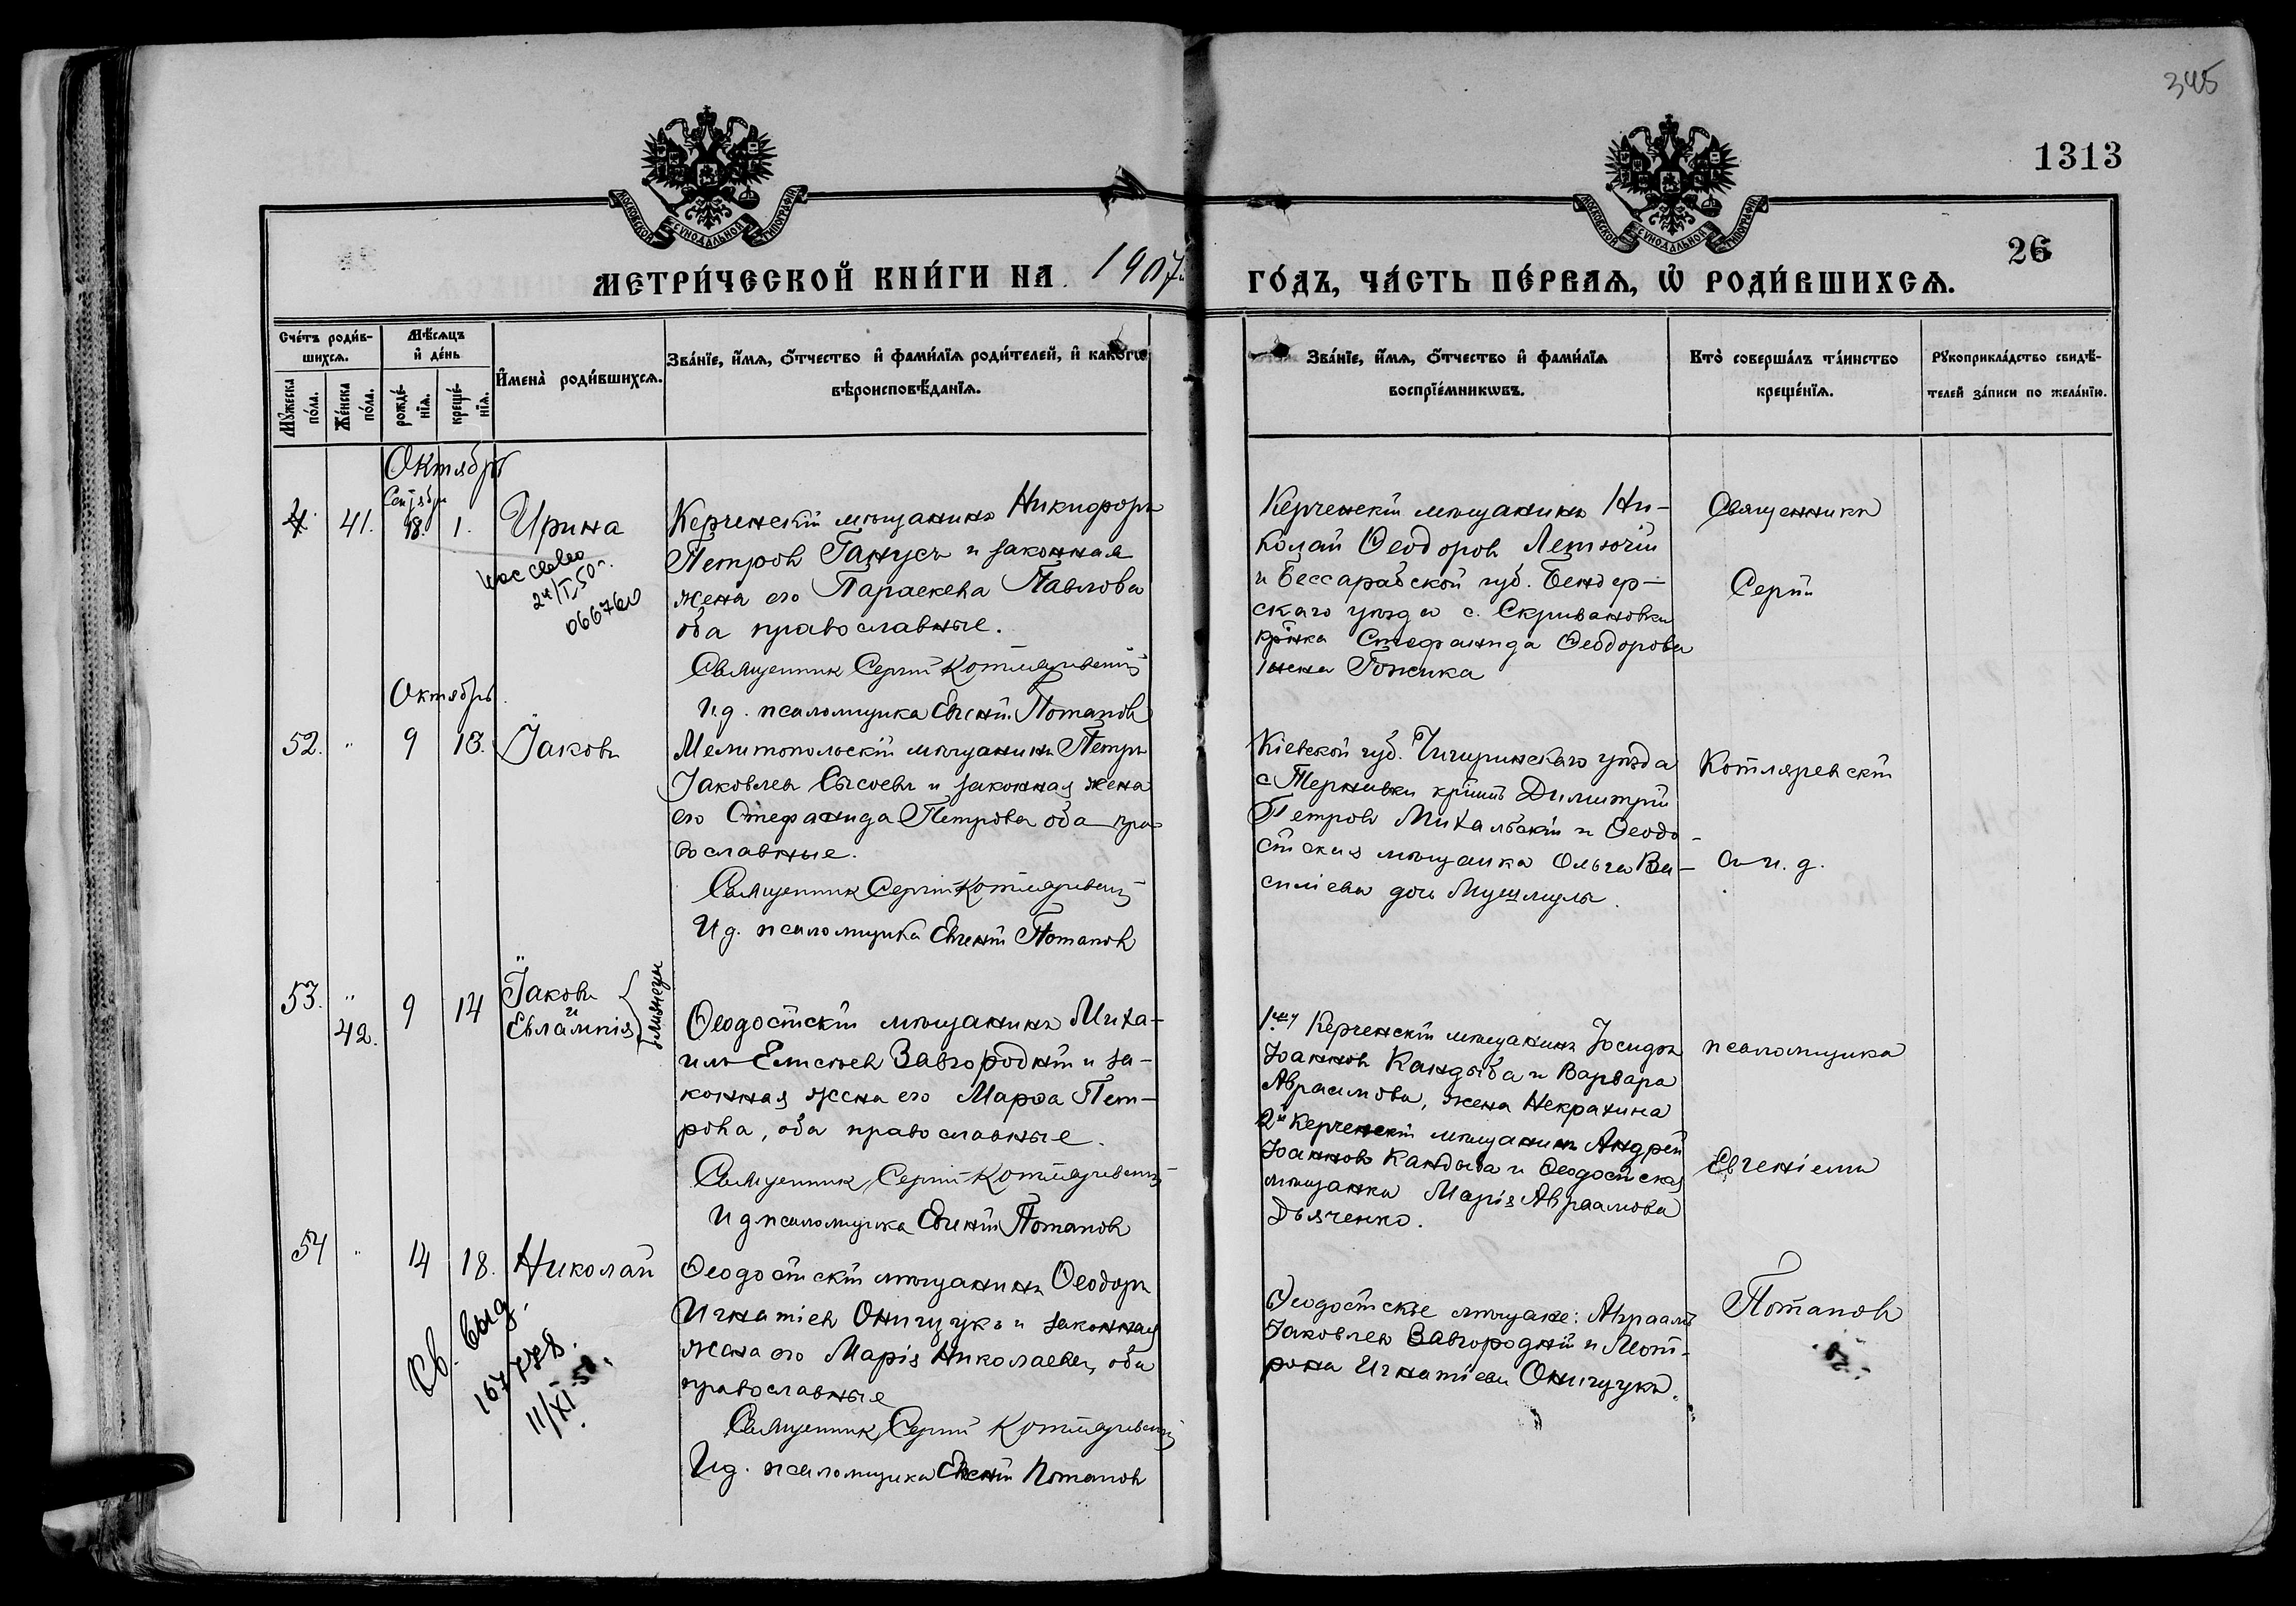 345
1313
26
МОСКОВСКОЙ СУНОДАЛЬНОЙ ТИПОГРАФІИ
МОСКОВСКОЙ СУНОДАЛЬНОЙ ТИПОГРАФІИ
МЕТРИ́ЧЕСКОЙ КНИ́ГИ НА 1907
ГО́ДЪ, ЧА́СТЬ ПЕ́РВАѦ, Ѽ РОДИ́ВШИХСѦ.
Сче́тъ роди́в-
шихсѧ.
Мꙋ́жеска по́ла.
Же́нска по́ла.
Мѣ́сѧцъ
и҆ де́нь
рожде́-
нїѧ.
креще́-
нїѧ.
И҆мена̀ роди́вшихсѧ.
Зва́нїе, и҆́мѧ, ѻ҆́тчество и҆ фами́лїѧ роди́телей, и҆ како́гѡ
вѣроисповѣ́данїѧ.
Зва́нїе, и҆́мѧ, ѻ҆́тчество и҆ фами́лїѧ
воспрїе́мникѡвъ.
Кто̀ соверша́лъ та́инство
креще́нїѧ.
Рꙋкоприкла́дство свидѣ́-
телей за́писи по жела́нїю.
Октябрь
Сентября
41. 18. 1. Ирина
24/I,50г.
066760
Керченскій мѣщанинъ Никифоръ
Петровъ Ганусъ и законная
жена его Параскева Павлова
оба православные.
Священник Сергій Котляревскій
И.д. псаломщика Евгеній Потаповъ
Керченскій мѣщанинъ Ни-
колай Ѳеодоровъ Летючій
и Бессарабской губ. Бендер-
скаго уѣзда с. Скривановки
кр-нка Стефанида Ѳеодорова
жена Гонсика
Священникъ
Сергій
Октябрь
52. " 9 13. Іаковъ
Мелитопольскій мѣщанинъ Петръ
Іаковлевъ Сысоевъ и законная жена
его Стефанида Петрова оба пра-
вославные.
Священник Сергій Котляревскій
И.д. псаломщика Евгеній Потаповъ
Кіевской губ. Чигиринскаго уѣзда
с. Терновки кр-нинъ Димитрій
Петровъ Михальскій и Ѳеодо-
сійская мѣщанка Ольга Ва-
сильева дочь Мушмулы.
Котляревскій
съ и. д.
53. " 42. 9 14 Іаковъ
и
Евлампія
близнецы
Ѳеодосійскій мѣщанинъ Миха-
илъ Елисѣевъ Завгородній и за-
конная жена его Марѳа Пет-
рова, оба православные.
Священник Сергій Котляревскій
И д псаломщика Евгеній Потаповъ
1му Керченскій мѣщанинъ Іосифъ
Іоанновъ Кандыба и Варвара
Авраамова, жена Некрахина
2й Керченскій мѣщанинъ Андрей
Іоанновъ Кандыба и Ѳеодосійская
мѣщанка Марія Авраамова
Дьяченко.
псаломщика
Евгеніемъ
54 " 14 18. Николай
Св. выд.
167778.
11/XI-51.
Ѳеодосійскій мѣщанинъ Ѳеодоръ
Игнатіевъ Онищукъ и законная
жена его Марія Николаева, оба
православные
Священник Сергій Котляревскій
И.д. псаломщика Евгеній Потаповъ
Ѳеодосійскіе мѣщане: Авраамъ
Іаковлевъ Завгородній и Мот-
рона Игнатіева Онищукъ.
Потаповъ